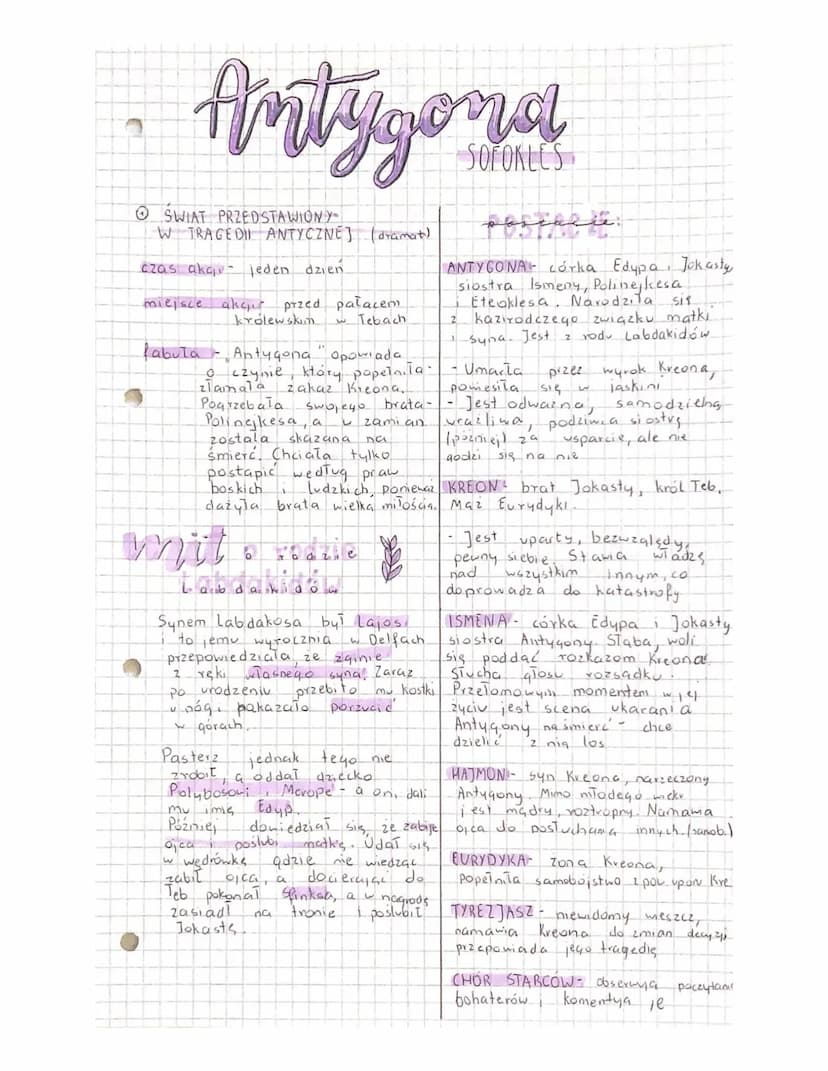 Antygona
SOFOKLES
ŚWIAT PRZEDSTAWIONY
W TRAGEDII ANTYCZNEJ (dramat)
czas akcji - jeden dzień
miejsce akcji przed pałacem
królewskim w Tebach
fabuła - „Antygona" opowiada
o czynie, który popełniła -
złamała zakaz Kreona.
Pogrzebała swojego brata -
Polinejkesa, a w zamian
została skazana na
śmierć. Chciała tylko
postąpić według praw
boskich i ludzkich, ponieważ
dażyła brata wielką miłością.
mit o rodzie
Labdakidów
Synem Labdakosa był Lajos
i to jemu wyrocznia w Delfach
przepowiedziała, że zginie
z ręki własnego syna! Zaraz
po urodzeniu przebito mu kostki
u nóg i pokazało porzucić
w górach.
Pasterz jednak tego nie
zrobił, a oddał dziecko
Polybosowi i Merope - a on, dali
mu imię Edyp.
Później dowiedział się, że zabije
ojca i poślubi matkę. Udał się
w wędrówkę gdzie nie wiedząc
zabił ojca, a docierając do
Teb pokonał Sfinksa, a w nagrodę
zasiadł na tronie i poślubił
Jokastę.
POSTACIE:
ANTYGONA - córka Edypa i Jokasty
siostra Ismeny, Polinejkesa
i Eteoklesa. Narodziła się
z kazirodczego związku matki
i syna. Jest z rodu Labdakidów
- Umarła przez wyrok Kreona,
powiesiła się w jaskini
- Jest odważna, samodzielna
wrażliwa, podziwia siostrę
(później) za wsparcie, ale nie
godzi się na nie
KREON - brat Jokasty, król Teb,
Mąż Eurydyki.
- Jest uparty, bezwzględy,
pewny siebie. Stawia władzę
nad wszystkim innym, co
doprowadza do katastrofy
ISMENA - córka Edypa i Jokasty
siostra Antygony. Słaba, woli
się poddać rozkazom Kreona.
Słucha głosu rozsądku.
Przełomowym momentem w jej
życiu jest scena ukarania
Antygony na śmierć - chce
dzielić z nią los
HAJMON - syn Kreona, narzeczony
Antygony. Mimo młodego wieku
jest mądry, roztropny. Namawia
ojca do posłuchania innych. (samob.)
EURYDYKA - żona Kreona,
popełniła samobójstwo z pow. uporu Kre
TYREZJASZ - niewidomy wieszcz,
namawia Kreona do zmian decyzji
przepowiada jego tragedię
CHÓR STARCÓW - obserwują poczytani
bohaterów i komentują je